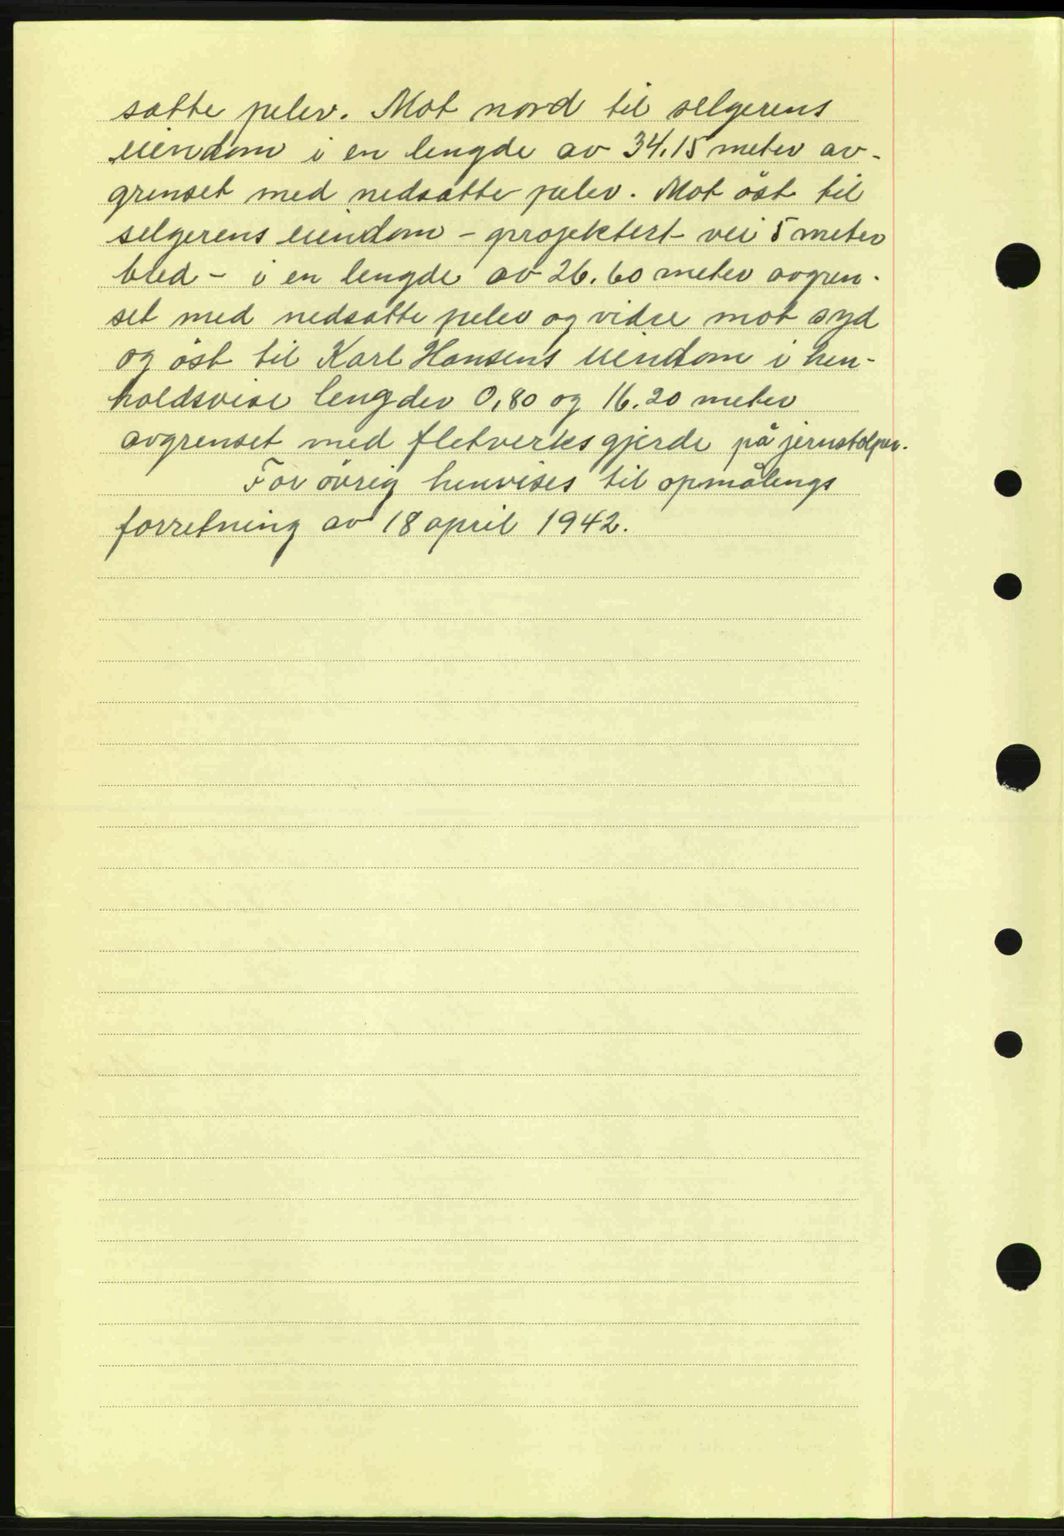 satte peler. Mot nord til selgerens
eiendom i en lengde av 34.15 meter av-
grenset med nedsatte peler. Mot öst til
selgerens eiendom - projektert vei 5 meter
bred - i en lengde av 26.60 meter avgren-
set med nedsatte peler og videre mot syd
og öst til Karl Hansens eiendom i hen-
holdsvise lengder 0,80 og 16.20 meter
avgrenset med fletverksgjerde på jernstolper.
For övrig henvises til opmålings
forretning av 18 april 1942.